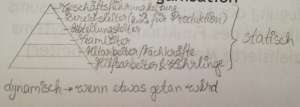 Geschäftsführung/Leitung
Bereichsleiter (z.B. für Produktion)
Abteilungsleiter
Teamleiter
Mitarbeiter/Fachkräfte
Hilfsarbeiter & Lehrlinge
statisch
dynamisch → wenn etwas getan wird